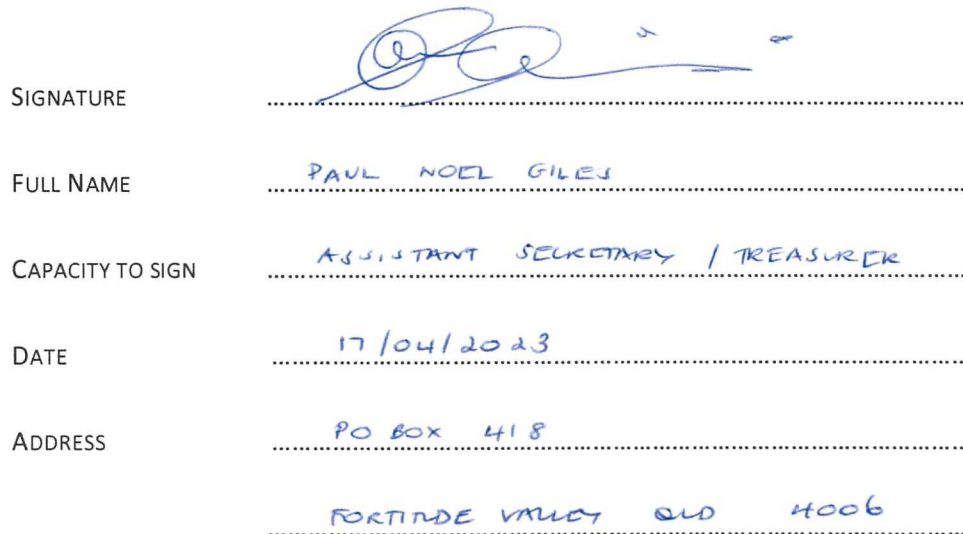 SIGNATURE
FULL NAME PAUL NOEL GILES
CAPACITY TO SIGN ASSISTANT SECRETARY / TREASURER
DATE 17/04/2023
ADDRESS PO BOX 418
FORTITUDE VALLEY QLD 4006